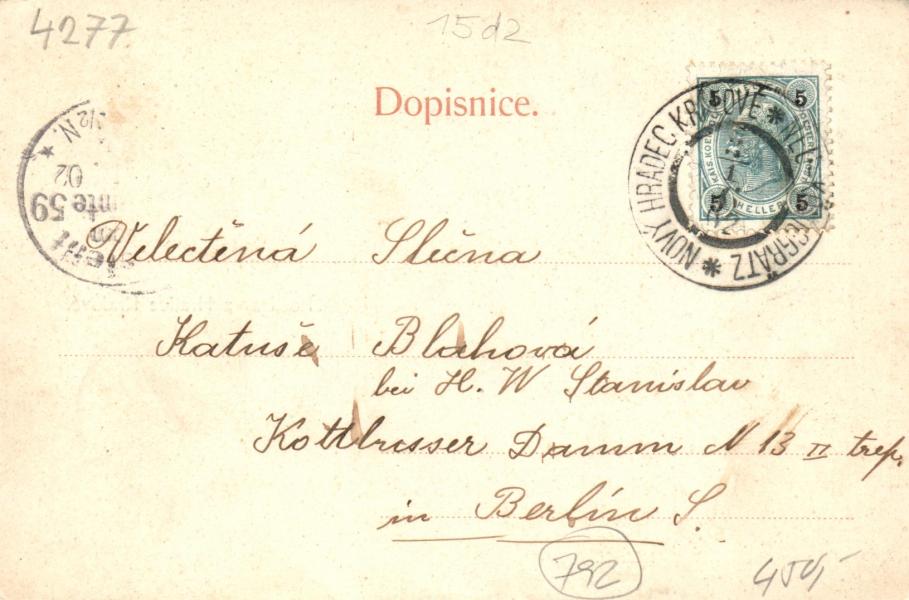 4277
15d2
Dopisnice.
5 5
NOVÝ HRADEC KRÁLOVÉ * NEU
HELLER
5 5
12 N. *
02
59
Velectěná Slečna
Katuše Blahová
bei H. W Stanislav
Kottbusser Damm N 13 II trep.
in Berlín S.
792